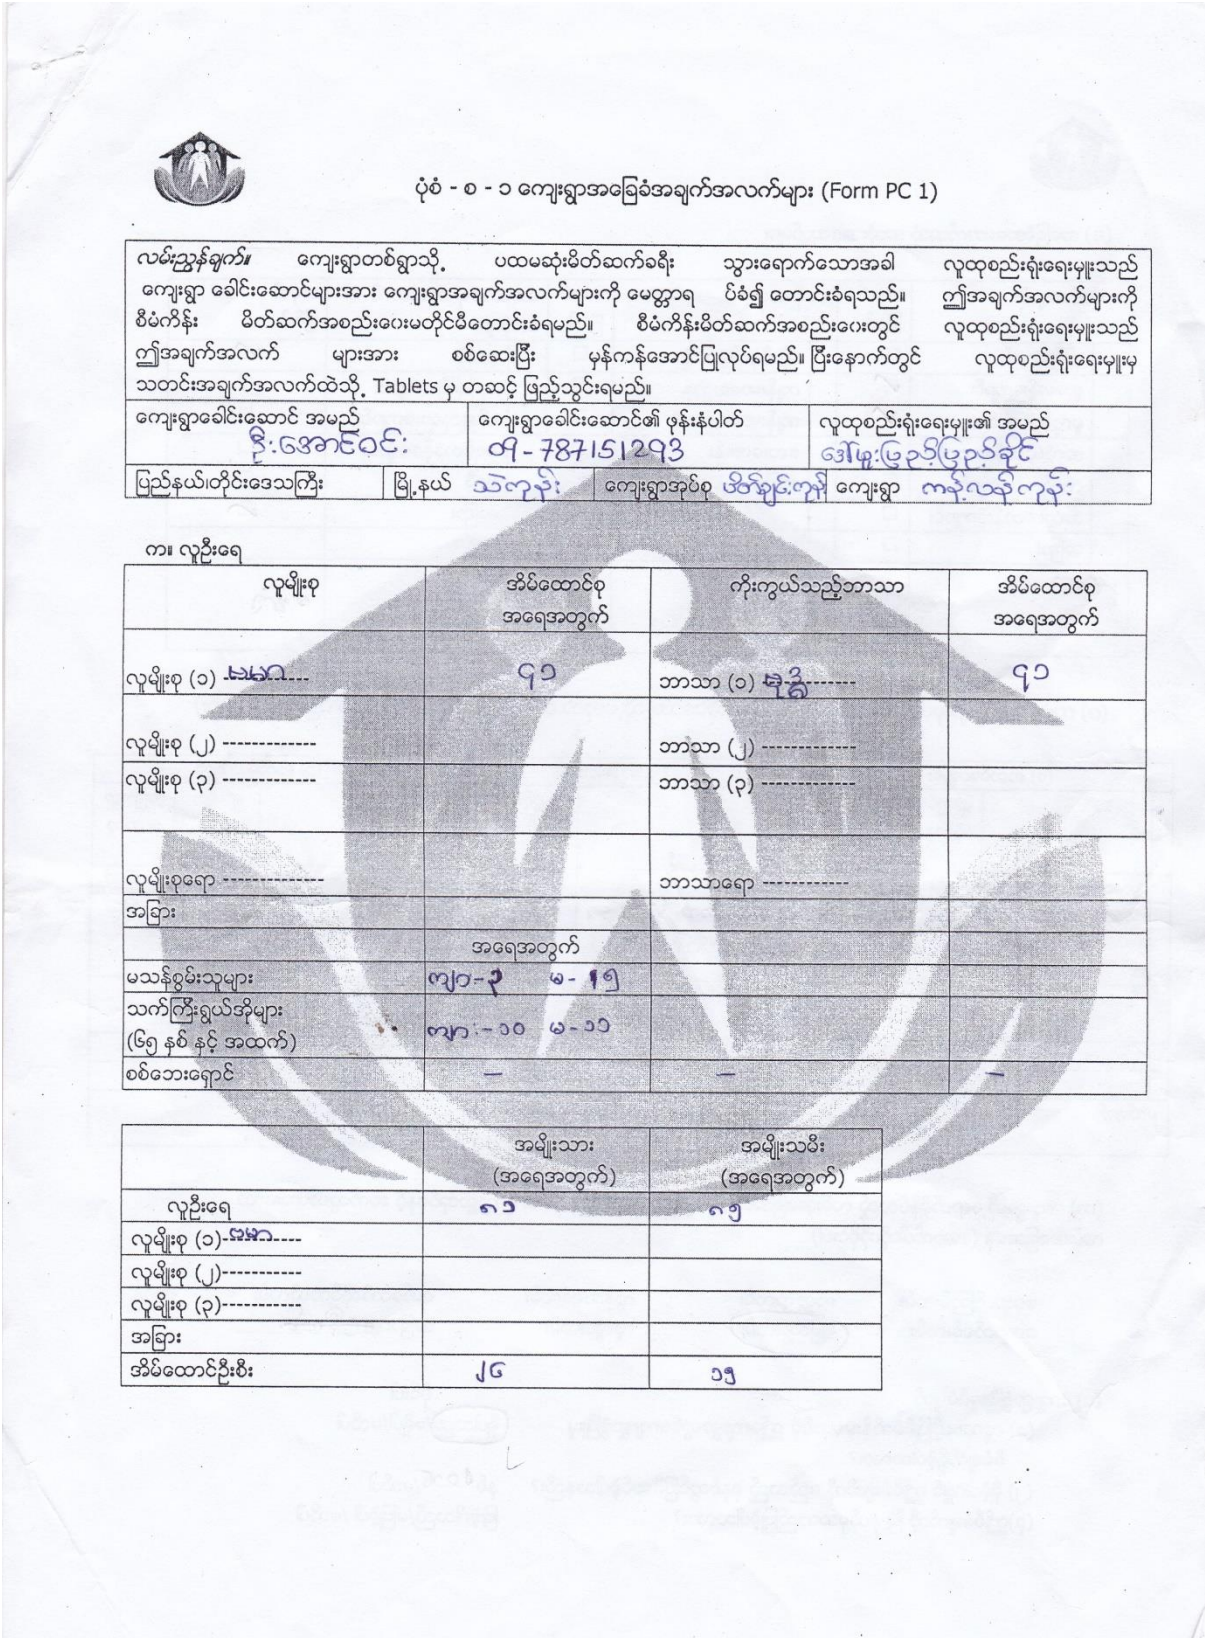 ပုံစံ - စ - ၁ ကျေးရွာအခြေခံအချက်အလက်များ (Form PC 1)
လမ်းညွှန်ချက်။ ကျေးရွာတစ်ရွာသို့ ပထမဆုံးမိတ်ဆက်ခရီး သွားရောက်သောအခါ လူထုစည်းရုံးရေးမှူးသည်
ကျေးရွာ ခေါင်းဆောင်များအား ကျေးရွာအချက်အလက်များကို မေတ္တာရ ပ်ခံ၍ တောင်းခံရသည်။ ဤအချက်အလက်များကို
စီမံကိန်း မိတ်ဆက်အစည်းဝေးမတိုင်မီတောင်းခံရမည်။ စီမံကိန်းမိတ်ဆက်အစည်းဝေးတွင် လူထုစည်းရုံးရေးမှူးသည်
ဤအချက်အလက် များအား စစ်ဆေးပြီး မှန်ကန်အောင်ပြုလုပ်ရမည်။ ပြီးနောက်တွင် လူထုစည်းရုံးရေးမှူးမှ
သတင်းအချက်အလက်ထဲသို့ Tablets မှ တဆင့် ဖြည့်သွင်းရမည်။
ကျေးရွာခေါင်းဆောင် အမည် ကျေးရွာခေါင်းဆောင်၏ ဖုန်းနံပါတ် လူထုစည်းရုံးရေးမှူး၏ အမည်
ဦးအောင်ဝင်း 09-787151293
ပြည်နယ်၊တိုင်းဒေသကြီး မြို့နယ် သဲကုန်း ကျေးရွာအုပ်စု ကျေးရွာ ကန့်လန့်ကုန်း
က။ လူဦးရေ
လူမျိုးစု အိမ်ထောင်စု ကိုးကွယ်သည့်ဘာသာ အိမ်ထောင်စု
အရေအတွက် အရေအတွက်
လူမျိုးစု (၁) ဗမာ ၄၁ ဘာသာ (၁) ဗုဒ္ဓ ၄၁
လူမျိုးစု (၂) ------------- ဘာသာ (၂) -------------
လူမျိုးစု (၃) ------------- ဘာသာ (၃) -------------
လူမျိုးစုရော -------------- ဘာသာရော ------------
အခြား
အရေအတွက်
မသန်စွမ်းသူများ ကျာ-၃ မ-
သက်ကြီးရွယ်အိုများ
(၆၅ နှစ် နှင့် အထက်) ကျား-၁၀ မ-၁၁
စစ်ဘေးရှောင် — — —
အမျိုးသား အမျိုးသမီး
(အရေအတွက်) (အရေအတွက်)
လူဦးရေ ၈၁ ၈၅
လူမျိုးစု (၁)-ဗမာ----
လူမျိုးစု (၂)-----------
လူမျိုးစု (၃)-----------
အခြား
အိမ်ထောင်ဦးစီး ၂၆ ၁၅